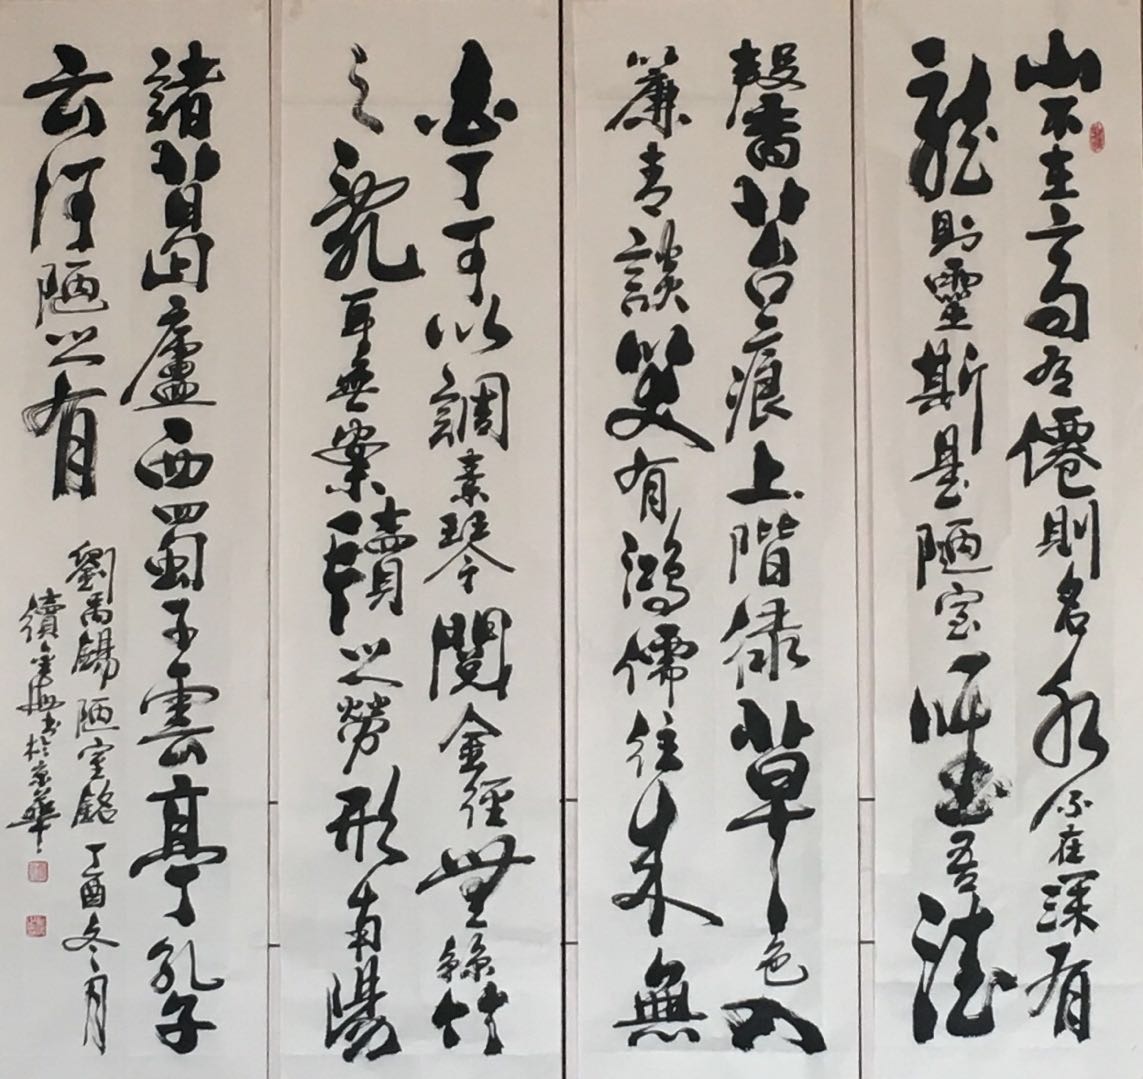 山不在高有僊則名水不在深有
龍則靈斯是陋室惟吾德
馨苔痕上階緑草色入
簾青談笑有鴻儒往來無
白丁可以調素琴閲金經無絲竹
之亂耳無案牘之勞形南陽
諸葛廬西蜀子雲亭孔子
云何陋之有
劉禹錫陋室銘丁酉冬月
續金海書於京華